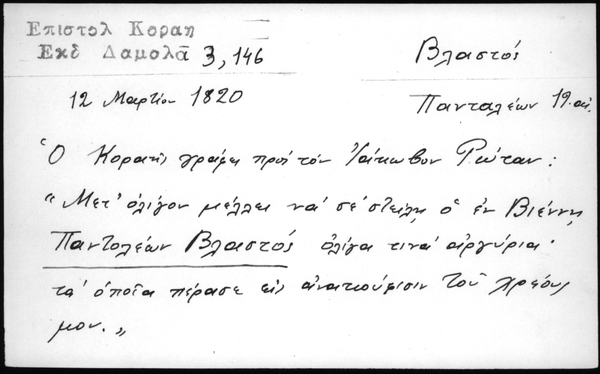 Επιστολ Κοραη
Εκδ Δαμαλᾶ 3, 146
Βλαστός
12 Μαρτίου 1820
Πανταλέων 19. αἰ.
Ὁ Κοραῆς γράφει πρὸς τὸν Ἰάκωβον Ρώταν:
"Μετ' ὀλίγον μέλλει νὰ σὲ στείλῃ ὁ ἐν Βιέννῃ
Παντολέων Βλαστός ὀλίγα τινὰ ἀργύρια·
τὰ ὁποῖα πέρασε εἰς ἀνακούφισιν τοῦ χρέους
μου."